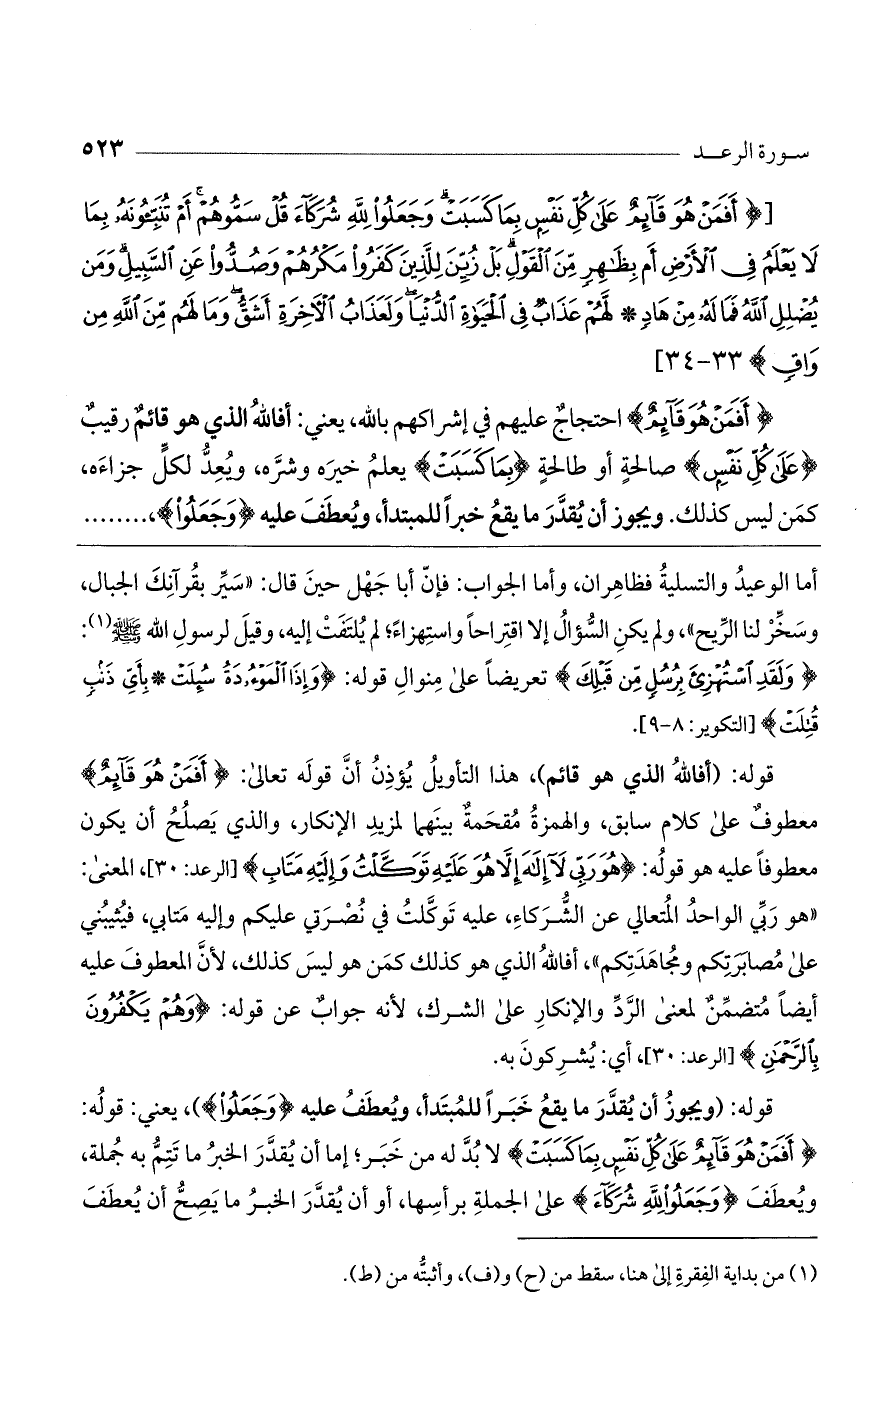 سورة الرعد ٥٢٣
[﴿ أَفَمَنْ هُوَ قَآئِمٌ عَلَىٰ كُلِّ نَفْسٍۭ بِمَا كَسَبَتْ ۗ وَجَعَلُوا۟ لِلَّهِ شُرَكَآءَ قُلْ سَمُّوهُمْ ۚ أَمْ تُنَبِّـُٔونَهُۥ بِمَا
لَا يَعْلَمُ فِى ٱلْأَرْضِ أَم بِظَٰهِرٍ مِّنَ ٱلْقَوْلِ ۗ بَلْ زُيِّنَ لِلَّذِينَ كَفَرُوا۟ مَكْرُهُمْ وَصُدُّوا۟ عَنِ ٱلسَّبِيلِ ۗ وَمَن
يُضْلِلِ ٱللَّهُ فَمَا لَهُۥ مِنْ هَادٍ * لَّهُمْ عَذَابٌ فِى ٱلْحَيَوٰةِ ٱلدُّنْيَا ۖ وَلَعَذَابُ ٱلْآخِرَةِ أَشَقُّ ۖ وَمَا لَهُم مِّنَ ٱللَّهِ مِن
وَاقٍ ﴾ ٣٣-٣٤]
﴿ أَفَمَنْ هُوَ قَآئِمٌ﴾ احتجاجٌ عليهم في إشراكهم بالله، يعني: أفاللهُ الذي هو قائمٌ رقيبٌ
﴿عَلَىٰ كُلِّ نَفْسٍ﴾ صالحةٍ أو طالحةٍ ﴿بِمَا كَسَبَتْ﴾ يعلمُ خيرَه وشرَّه، ويُعِدُّ لكلٍّ جزاءَه،
كمَن ليس كذلك. ويجوز أن يُقدَّرَ ما يقعُ خبراً للمبتدأ، ويُعطَفَ عليه ﴿وَجَعَلُوا۟﴾، ........
أما الوعيدُ والتسليةُ فظاهِران، وأما الجواب: فإنّ أبا جَهْل حينَ قال: «سَيِّر بقُرآنِكَ الجبال،
وسَخِّرْ لنا الرِّيح»، ولم يكنِ السُّؤالُ إلا اقتِراحاً واستِهزاءً؛ لم يُلتفَتْ إليه، وقيلَ لرسولِ الله ﷺ(١):
﴿ وَلَقَدِ ٱسْتُهْزِئَ بِرُسُلٍ مِّن قَبْلِكَ ﴾ تعريضاً علىٰ مِنوالِ قوله: ﴿وَإِذَا ٱلْمَوْءُۥدَةُ سُئِلَتْ * بِأَىِّ ذَنۢبٍ
قُتِلَتْ﴾ [التكوير: ٨-٩].
قوله: (أفاللهُ الذي هو قائم)، هذا التأويلُ يُؤذِنُ أنَّ قولَه تعالىٰ: ﴿ أَفَمَنْ هُوَ قَآئِمٌ﴾
معطوفٌ علىٰ كلام سابق، والهمزةُ مُقحَمةٌ بينَهما لمزيدِ الإنكار، والذي يَصلُحُ أن يكون
معطوفاً عليه هو قولُه: ﴿هُوَ رَبِّى لَآ إِلَٰهَ إِلَّا هُوَ عَلَيْهِ تَوَكَّلْتُ وَإِلَيْهِ مَتَابِ﴾ [الرعد: ٣٠]، المعنىٰ:
«هو رَبِّي الواحدُ المُتعالي عن الشُّرَكاءِ، عليه تَوكَّلتُ في نُصْرَتي عليكم وإليه مَتابي، فيُثيبُني
علىٰ مُصابَرَتِكم ومُجاهَدَتِكم»، أفاللهُ الذي هو كذلك كمَن هو ليسَ كذلك، لأنَّ المعطوفَ عليه
أيضاً مُتضمِّنٌ لمعنىٰ الرَّدِّ والإنكارِ علىٰ الشرك، لأنه جوابٌ عن قوله: ﴿وَهُمْ يَكْفُرُونَ
بِٱلرَّحْمَٰنِ ﴾ [الرعد: ٣٠]، أي: يُشرِكونَ به.
قوله: (ويجوزُ أن يُقدَّرَ ما يقعُ خَبَراً للمُبتَدأ، ويُعطَفُ عليه ﴿وَجَعَلُوا۟﴾)، يعني: قولُه:
﴿ أَفَمَنْ هُوَ قَآئِمٌ عَلَىٰ كُلِّ نَفْسٍۭ بِمَا كَسَبَتْ﴾ لا بُدَّ له من خَبَر؛ إما أن يُقدَّرَ الخبرُ ما تَتِمُّ به جُملة،
ويُعطَفَ ﴿وَجَعَلُوا۟ لِلَّهِ شُرَكَآءَ ﴾ علىٰ الجملةِ برأسِها، أو أن يُقدَّرَ الخبرُ ما يَصِحُّ أن يُعطَفَ
(١) من بداية الفِقرةِ إلىٰ هنا، سقط من (ح) و(ف)، وأثبتُّه من (ط).